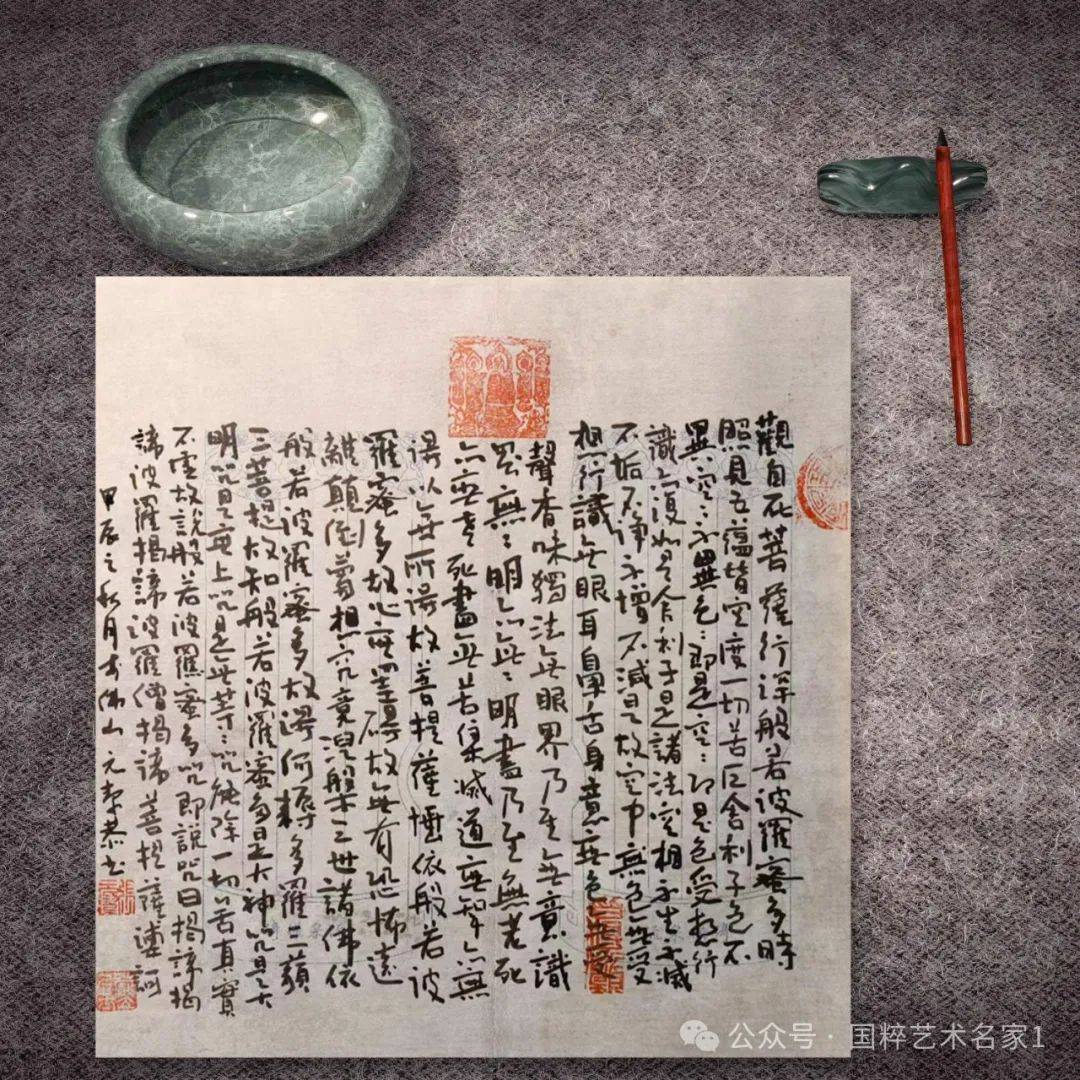 觀自在菩薩行深般若波羅蜜多時
照見五蘊皆空度一切苦厄舍利子色不
異空:不異色:即是空:即是色受想行
識亦復如是舍利子是諸法空相不生不滅
不垢不淨不增不減是故空中無色無受
想行識無眼耳鼻舌身意無色無受
聲香味觸法無眼界乃至無意識
界無:明亦無:明盡乃至無老死
亦無老死盡無苦集滅道無智亦無
得以無所得故菩提薩埵依般若波
羅蜜多故心無罣礙故無有恐怖遠
離顛倒夢想究竟涅槃三世諸佛依
般若波羅蜜多故得阿耨多羅三藐
三菩提故知般若波羅蜜多是大神咒是大
明咒是無上咒是無等:咒能除一切苦真實
不虛故說般若波羅蜜多咒即說咒曰揭諦揭
諦波羅揭諦波羅僧揭諦菩提薩婆訶
甲辰之秋月佛山元恭书
公众号 · 国粹艺术名家1